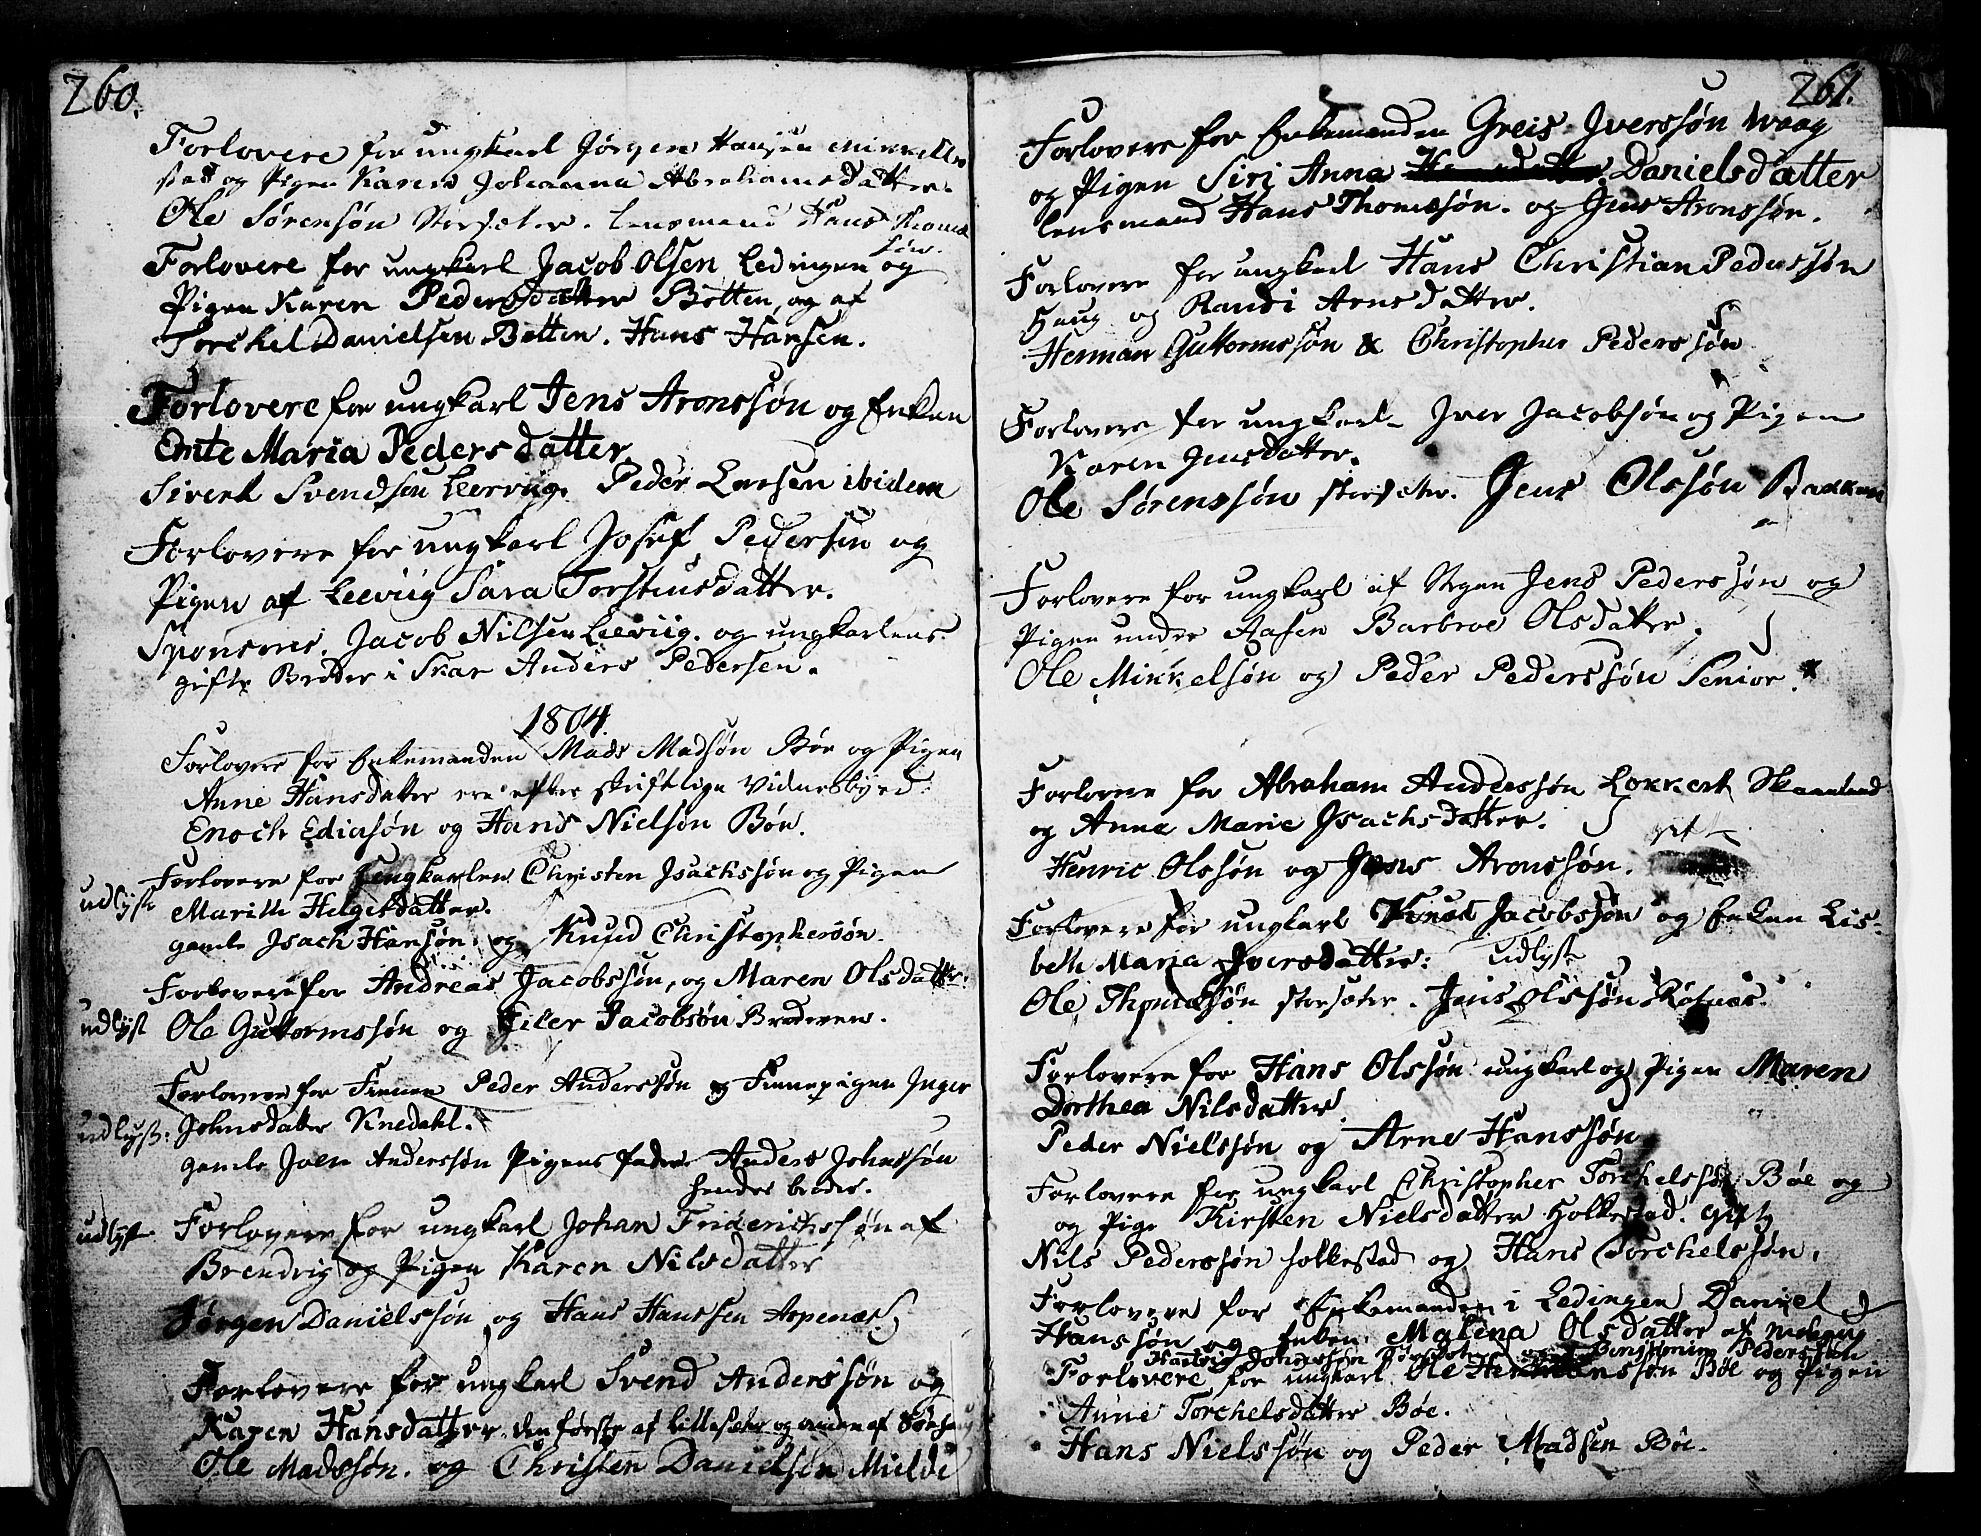 260.
Forlovere for ungkarl Jørgen Hansen Mikkelbo
stad og Pigen Karen Johanna Abrahamsdatter.
Ole Sørensøn Storsæter. Lensmand Hans Thomæ
søn.
Forlovere for ungkarl Jacob Olsen Ledingen og
Pigen Karen Pedersdatter Botten, og af
Torchel Danielsen Botten. Hans Hansen.
Forlovere for ungkarl Jens Aronssøn og Enken
Emte Maria Pedersdatter
Sivert Svendsen Leervig. Peder Larsen ibidem
Forlovere for ungkarl Josef Pedersen og
Pigen af Leeviig Sara Torstensdatter.
Sponsores. Jacob Nilsen Leeviig. og ungkarlens
gifte Broder i Skar Anders Pedersen.
1804.
Forlovere for Enkemanden Mads Madsøn Bøe og Pigen
Anne Hansdatter ere efter skriftlige Vidnesbyrd
Enoch Ediasøn og Hans Nielsøn Bøe.
Forlovere for ungkarlen Christen Jsachssøn og Pigen
udlyst Marith Helgesdatter.
gamle Jsach Hansøn og Knud Christophersøn.
Forlovere for Andreas Jacobssøn, og Maren Olsdatter.
udlyst Ole Guttormssøn og Eiler Jacobsøn Broderen.
Forlovere for Finnen Peder Anderssøn og Finnepigen Inger
udlyst: Johnsdatter Knedahl.
gamle Joen Anderssøn Pigens fader Anders Johnssøn
hendes broder.
udlyst Forlovere for ungkarl Johan Friderichssøn af
Brendvig og Pigen Karen Nilsdatter
Jørgen Danielssøn og Hans Hanssen Aspenæs
Forlovere for ungkarl Svend Anderssøn og
Karen Hansdatter den første af Lillesæter og anden af
Ole Madssøn. og Christen Danielsøn Mielde
261.
Forlovere for Enkemanden Greis Jverssøn Waag
og Pigen Siri Anna Danielsdatter
lensmand Hans Thomesøn. og Jens Aronssøn.
Forlovere for ungkarl Hans Christian Pederssøn
Haug og Randi Arnsdatter.
Herman Guttormssøn & Christopher Pederssøn
Forlovere for ungkarl Jver Jacobsøn og Pigen
Karen Jensdatter.
Ole Sørenssøn Storsæter. Jens Olssøn Bakken
Forlovere for ungkarl af Stegen Jens Pederssøn og
Pigen undre Aasen Barbroe Olsdatter.
Ole Mikkelsøn og Peder Pederssøn Senior.
Forlovere for Abraham Anderssøn Lokkert Skaanland
og Anne Marie Jsachsdatter. gift
Henric Olssøn og Jens Aronssøn.
Forlovere for ungkarl Knud Jacobssøn og Enken Lis-
beth Maria Jversdatter: udlyst
Ole Thomesøn Storsæter. Jens Olssøn Røsnæs.
Forlovere for Hans Olssøn ungkarl og Pigen Maren
Dorthea Nilsdatter
Peder Nielssøn og Arne Hanssøn
Forlovere for ungkarl Christopher Torchelssøn Bøe og
og Pige Kirsten Nielsdatter Holkestad. gift
Nils Pederssøn Holkestad og Hans Torchelssøn.
Forlovere for Enkemanden i Ledingen Daniel
Hanssøn og Enken Malena Olsdatter af
Hartvig Johnssøn Pederssøn
Forlovere for ungkarl Ole Hermanssøn Bøe og Pigen
Anne Torchelsdatter Bøe.
Hans Nielssøn og Peder Madsen Bøe.